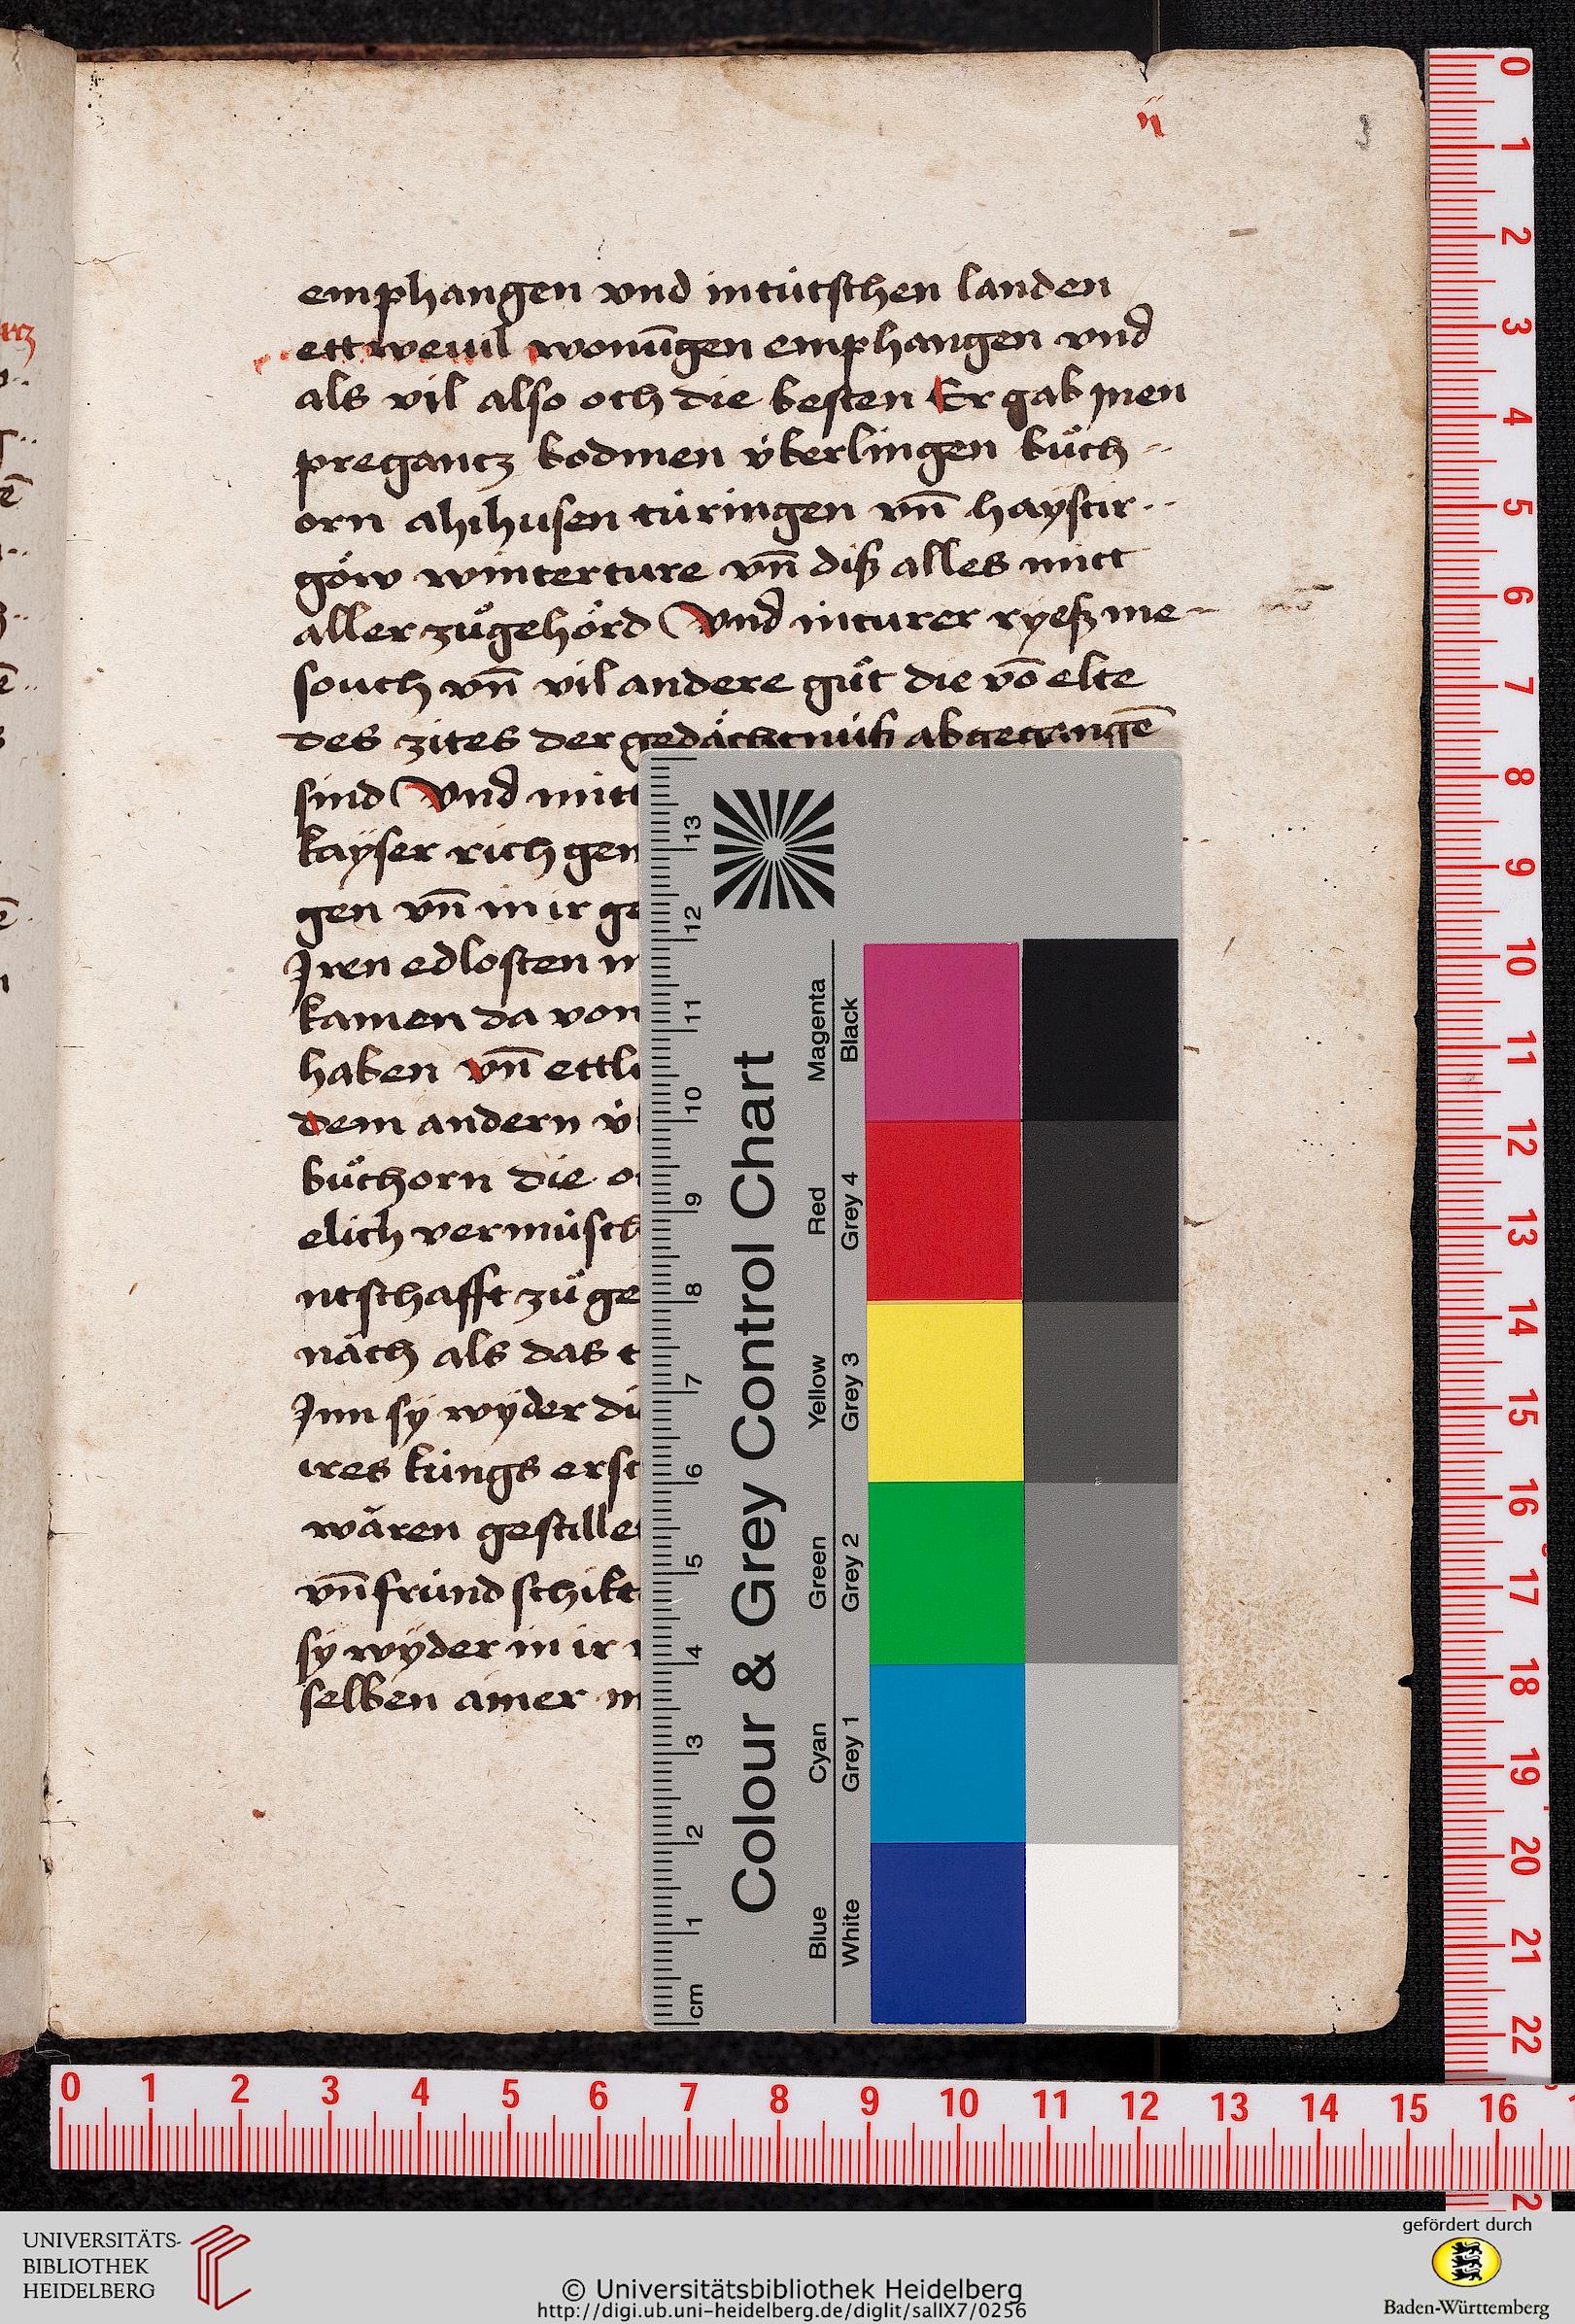 ij
3
emphangen vnd in tütschen landen
ettwe uil wonūgen emphangen vnd
als vil also och die besten Er gab jnen
pregancz bodmen v̈berlingen bůch
orn ahihusen türingen vn̄ haystir
göw winterture vn̄ diß alles mitt
aller zůgehörd Vnd in turer ryeß me
souch vn̄ vil andere gůt die vō elte
des zites der gedächtnüß abgegangē
sind Vnd mitt
kayser rich gen
gen vn̄ in ir ge
Iren edlosten m
kamen da von
haben vn̄ ettli
dem andern v̈
bůchorn die
elich vermüsch
ntschafft zů ge
näch als das
Inn sy wyder di
ires küngs erst
wären gestille
vn̄ fründ schikt
sy wyder in ir
selben ainer
Colour & Grey Control Chart
Magenta Black
Red Grey 4
Yellow Grey 3
Green Grey 2
Cyan Grey 1
Blue White
13
12
11
10
9
8
7
6
5
4
3
2
1
cm
0
1
2
3
4
5
6
7
8
9
10
11
12
13
14
15
16
17
18
19
20
21
22
0 1 2 3 4 5 6 7 8 9 10 11 12 13 14 15 16
UNIVERSITÄTS-
BIBLIOTHEK
HEIDELBERG
© Universitätsbibliothek Heidelberg
http://digi.ub.uni-heidelberg.de/diglit/salIX7/0256
gefördert durch
Baden-Württemberg